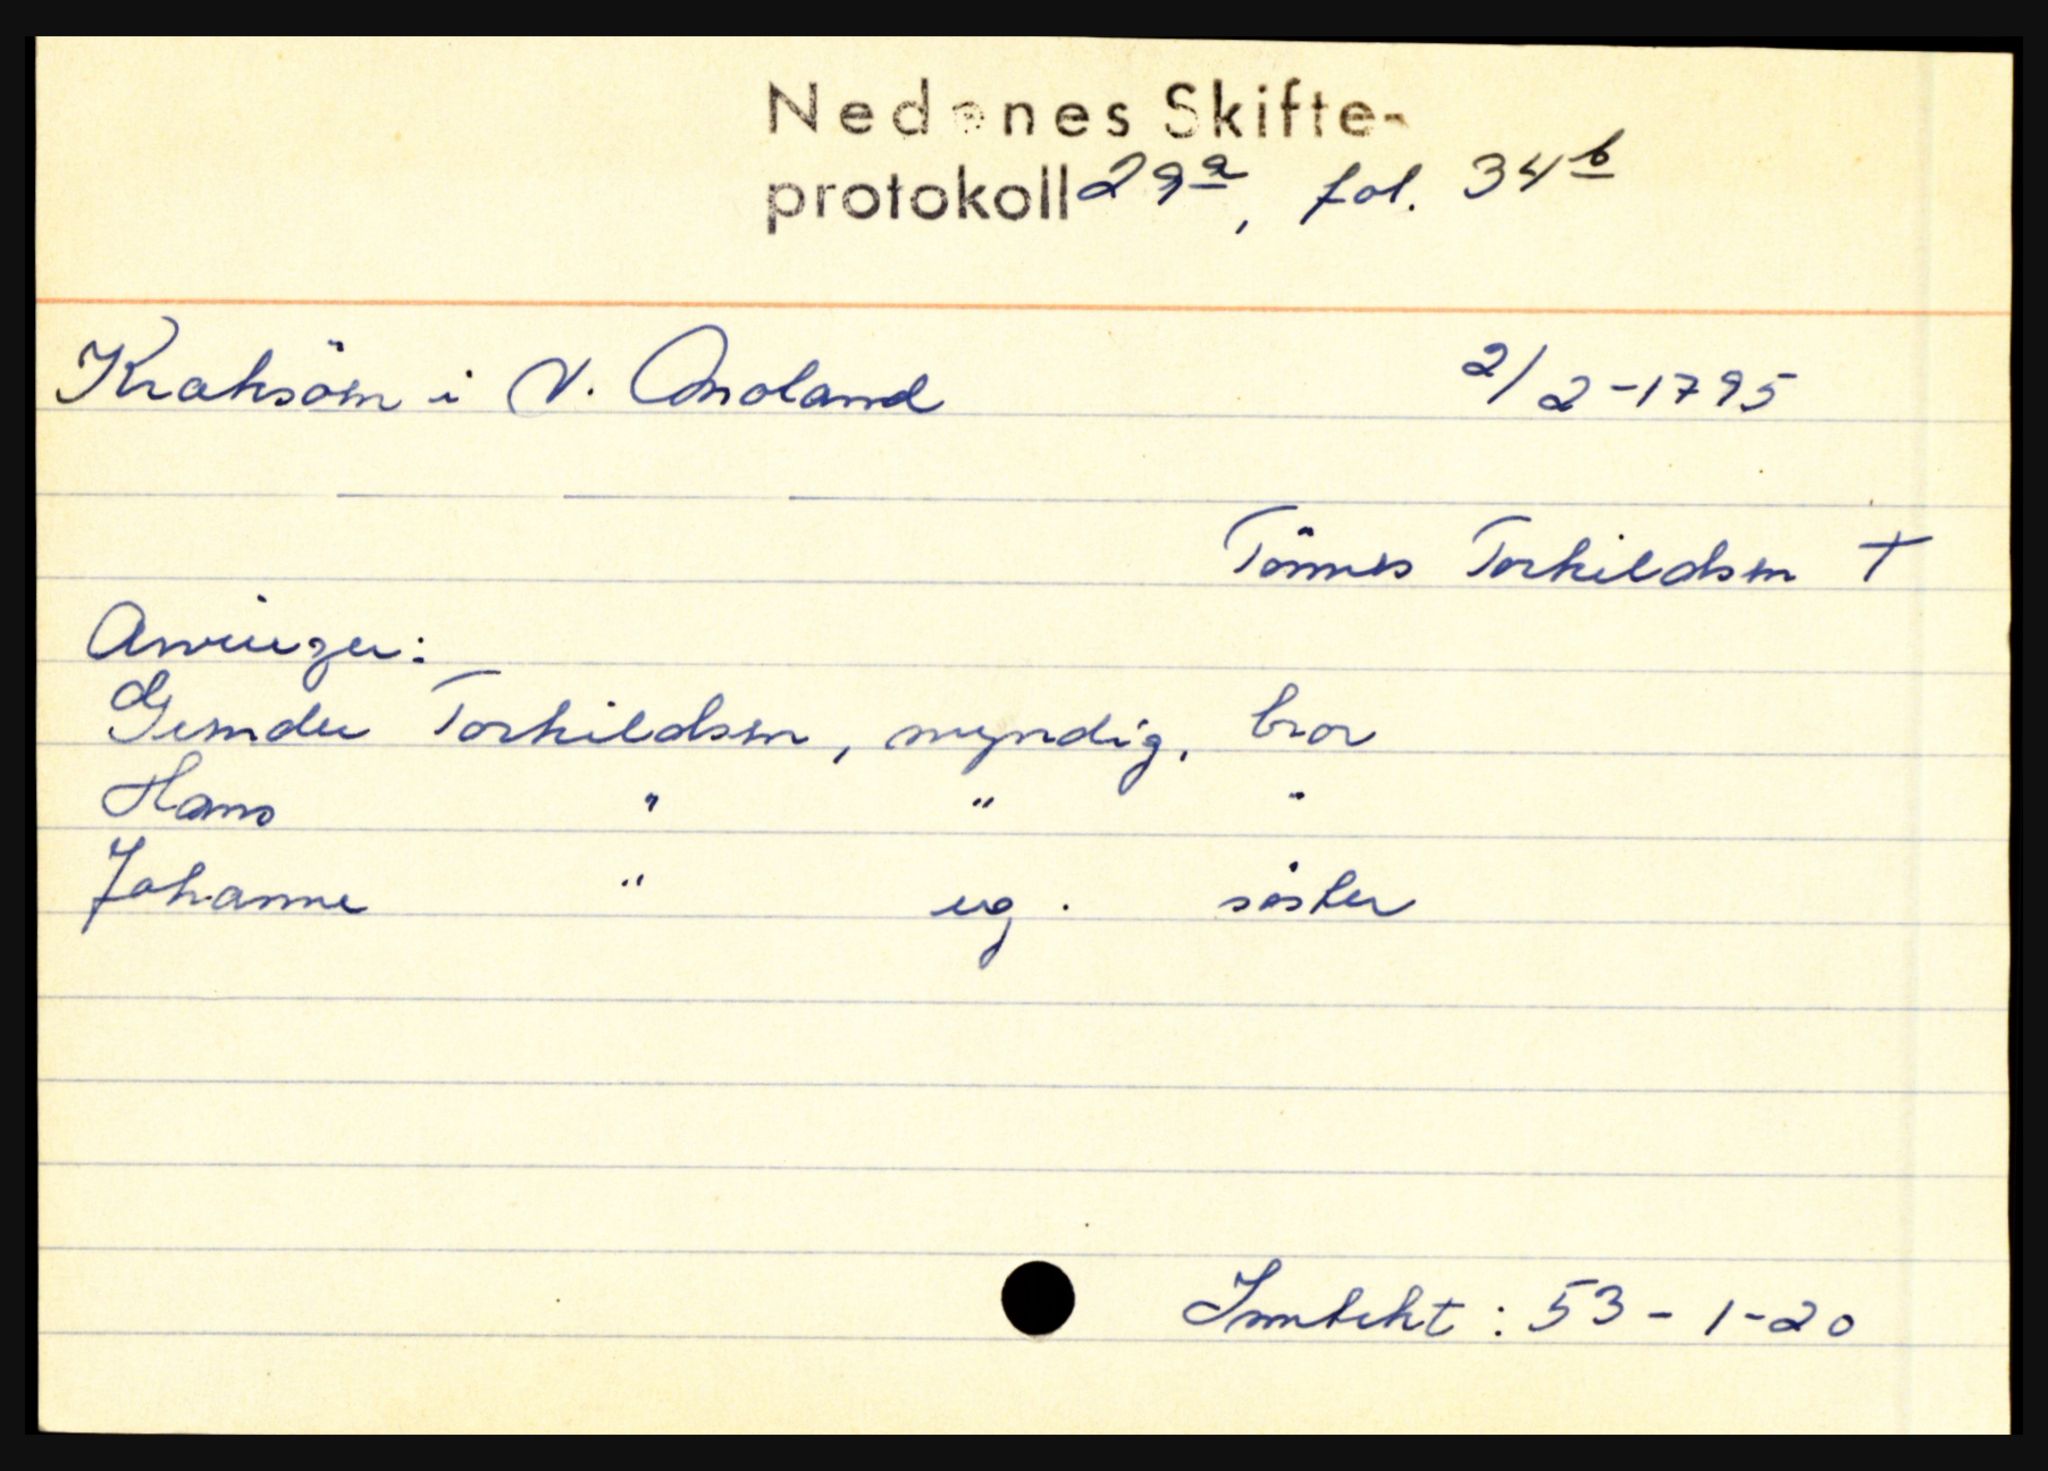 Nedenes Skifte-
protokoll 29a, fol. 34b
Kraksöm i V. Moland 2/2-1795
Tönnes Torkildsen †
Arvinger:
Gunder Torkildsen, myndig, bror
Hans " " "
Johanne " ug. söster
Inntekt: 53-1-20